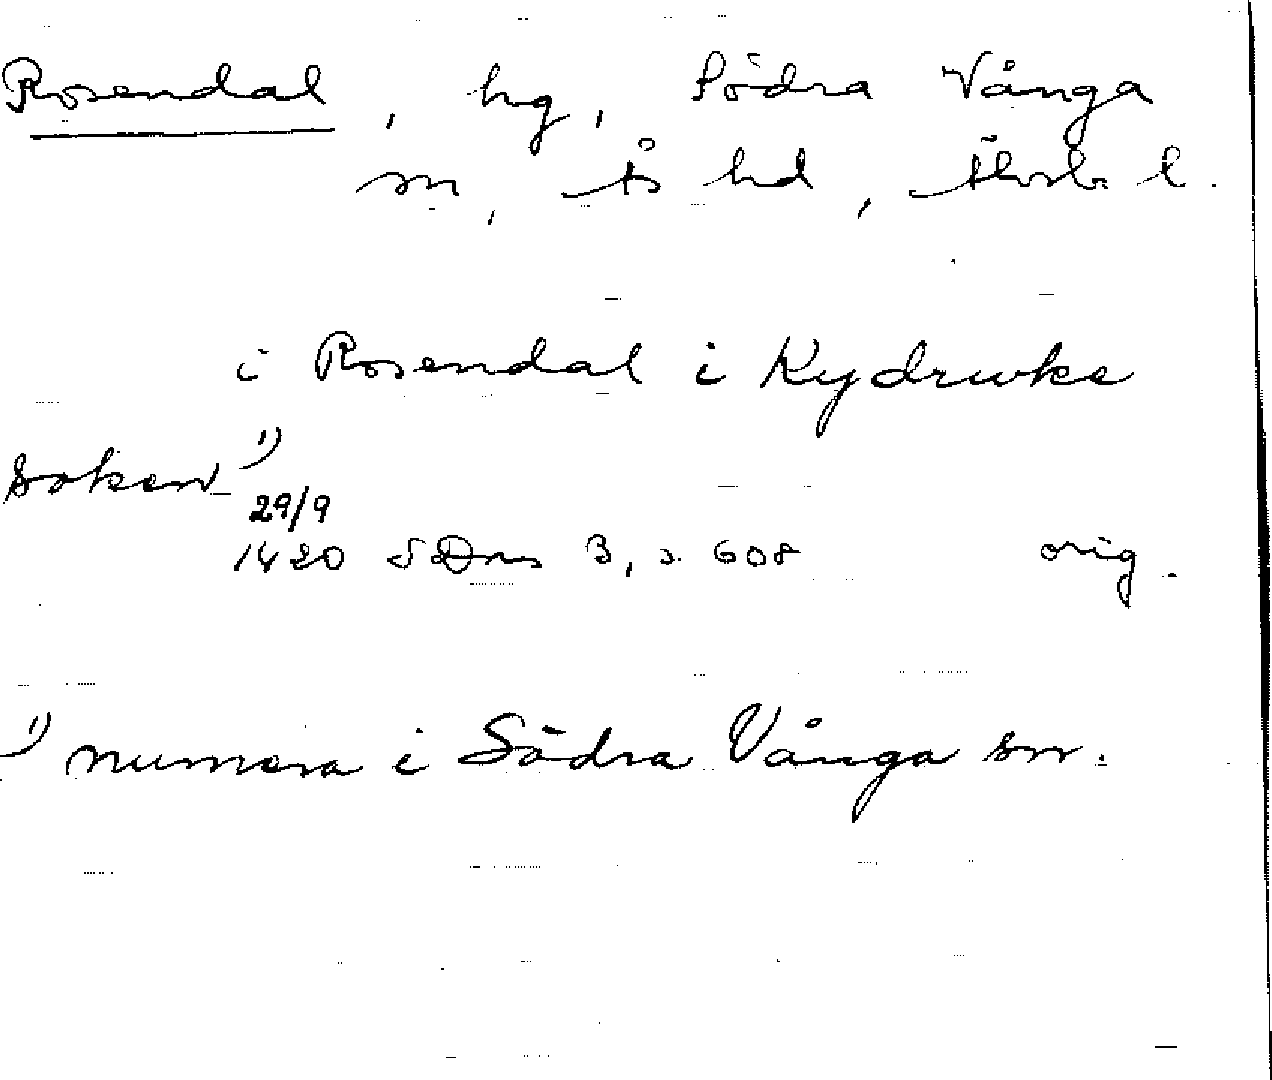 Rosendal, hg, Södra Vånga
sn, Ås hd, Älvsb. l.
i Rosendal i Kydrwke
soken 1)
29/9
1420 SDns 3, s. 608 orig.
1) numera i Södra Vånga sn.